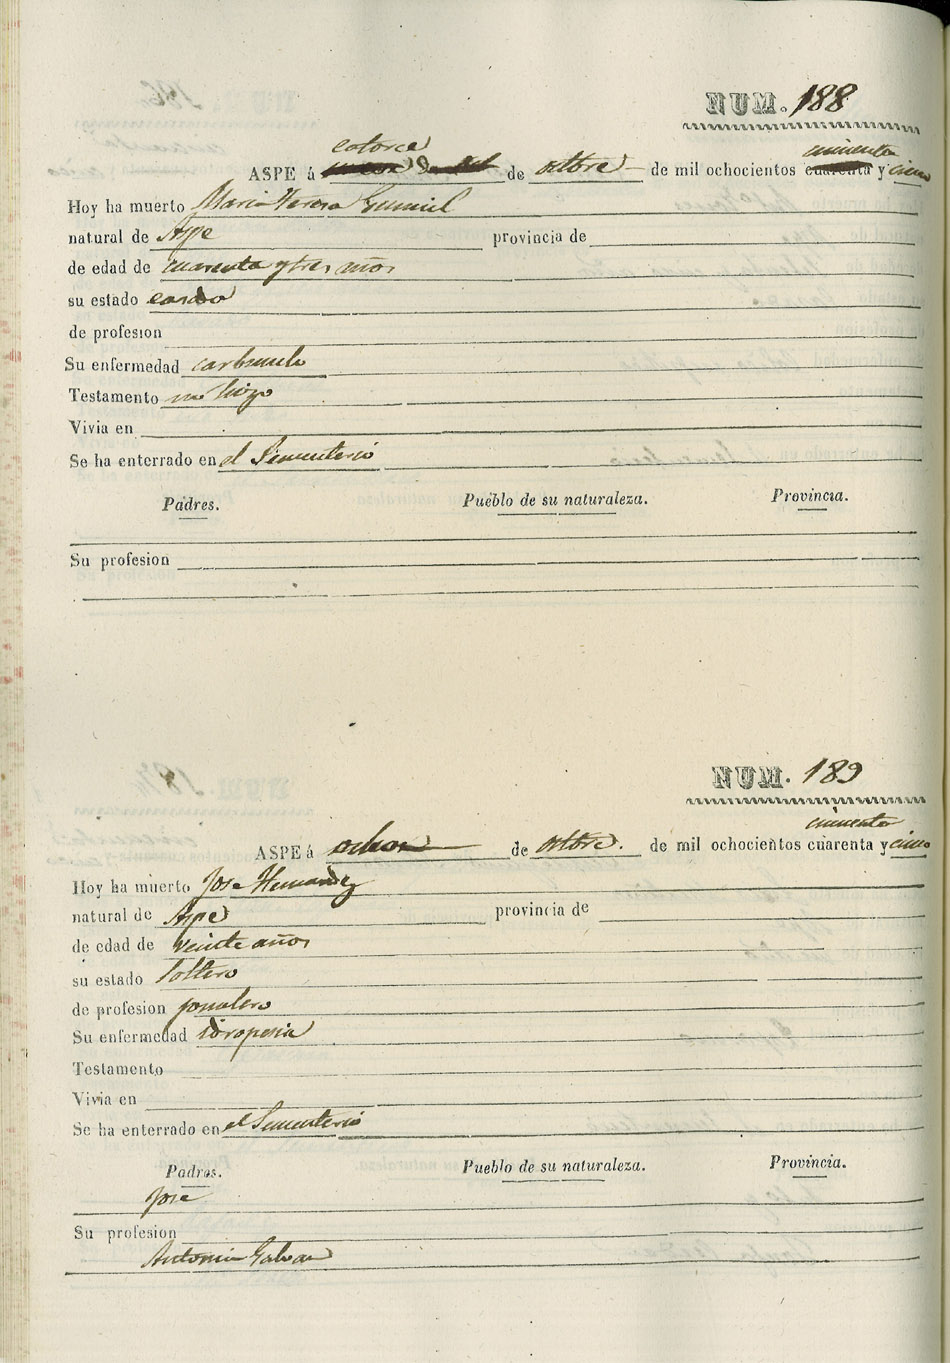 NUM. 188
catorce cincuenta
ASPE á de octbre de mil ochocientos cuarenta y cinco
Hoy ha muerto Maria Teresa Gumiel
natural de Aspe provincia de
de edad de cuarenta y tres años
su estado casado
de profesion
Su enfermedad carbunclo
Testamento no hizo
Vivia en
Se ha enterrado en el Simenterio
Padres. Pueblo de su naturaleza. Provincia.
Su profesion
NUM. 189
cincuenta
ASPE á de octbre. de mil ochocientos cuarenta y cinco
Hoy ha muerto Jose Hernandez
natural de Aspe provincia de
de edad de veinte años
su estado soltero
de profesion jornalero
Su enfermedad idropesia
Testamento
Vivia en
Se ha enterrado en el Sementerio
Padres. Pueblo de su naturaleza. Provincia.
Jose
Su profesion
Antonia Galvan